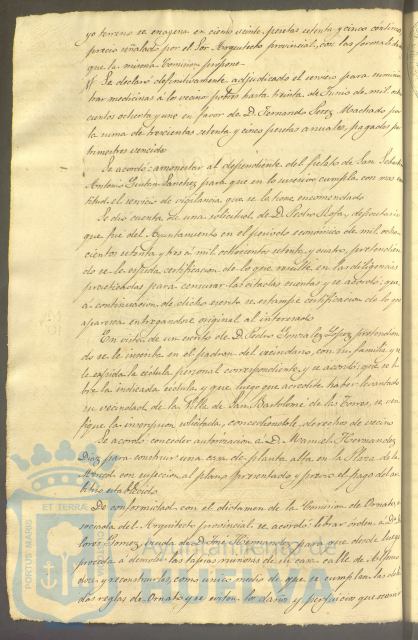 yo terreno se enagena en ciento veinte pesetas setenta y cinco céntimos
precio señalado por el Sor. Arquitecto provincial, con las formalidades
que la misma Comision propone.
Se declaró definitivamente adjudicado el servicio para suminis
trar medicinas á los vecinos pobres hasta treinta de Junio de mil ocho
cientos ochenta y uno en favor de D. Fernando Perez Machado por
la suma de trescientas setenta y cinco pesetas anuales, pagadas por
trimestres vencidos.
Se acordó amonestar al dependiente del fielato de San Sebastian
Antonio Sanchez para que en lo sucesivo cumpla con mas exac
titud el servicio de vigilancia que se le tiene encomendado.
Se dio cuenta de una solicitud de D. Pedro depositario
que fué del Ayuntamiento en el período económico de mil ocho
cientos setenta y tres á mil ochocientos setenta y cuatro, pretendien
do se le espida certificacion de lo que resulte en las diligencias
practicadas para censurar las citadas cuentas y se acordó; que
á continuacion de dicho escrito se estampe certificacion de lo que
aparezca entregandose original al interesado.
En vista de un escrito de D. Pedro Gonzalez Lopez pretendien
do se le inscriba en el padron del vecindario, con su familia, y se
le espida la cédula personal correspondiente, y se acordó; que se li
bre la indicada cédula y que luego que acredite haber levantado
su vecindad de la Villa de San Bartolomé de las Torres, se veri
fique la inscripcion solicitada, concediendole derechos de vecino
Se acordó conceder autorizacion á D. Manuel Hernandez
Diaz para construir una casa de planta alta en la Plaza de la
Merced con sujecion al plano presentado y previo el pago del ar
bitrio establecido.
De conformidad con el dictamen de la Comision de Ornato, a
sociada del Arquitecto provincial, se acordó librar orden á Dª Do
lores Gomez, viuda de D. José para que desde luego
proceda á demoler las tapias ruinosas de su casa calle de Alfonso
doce y reconstruirlas como único medio de que se cumplan las debi
das reglas de Ornato y se eviten los daños y perjuicios que
PORTUS MARIS ET TERRÆ
Ayuntamiento de
HUELVA